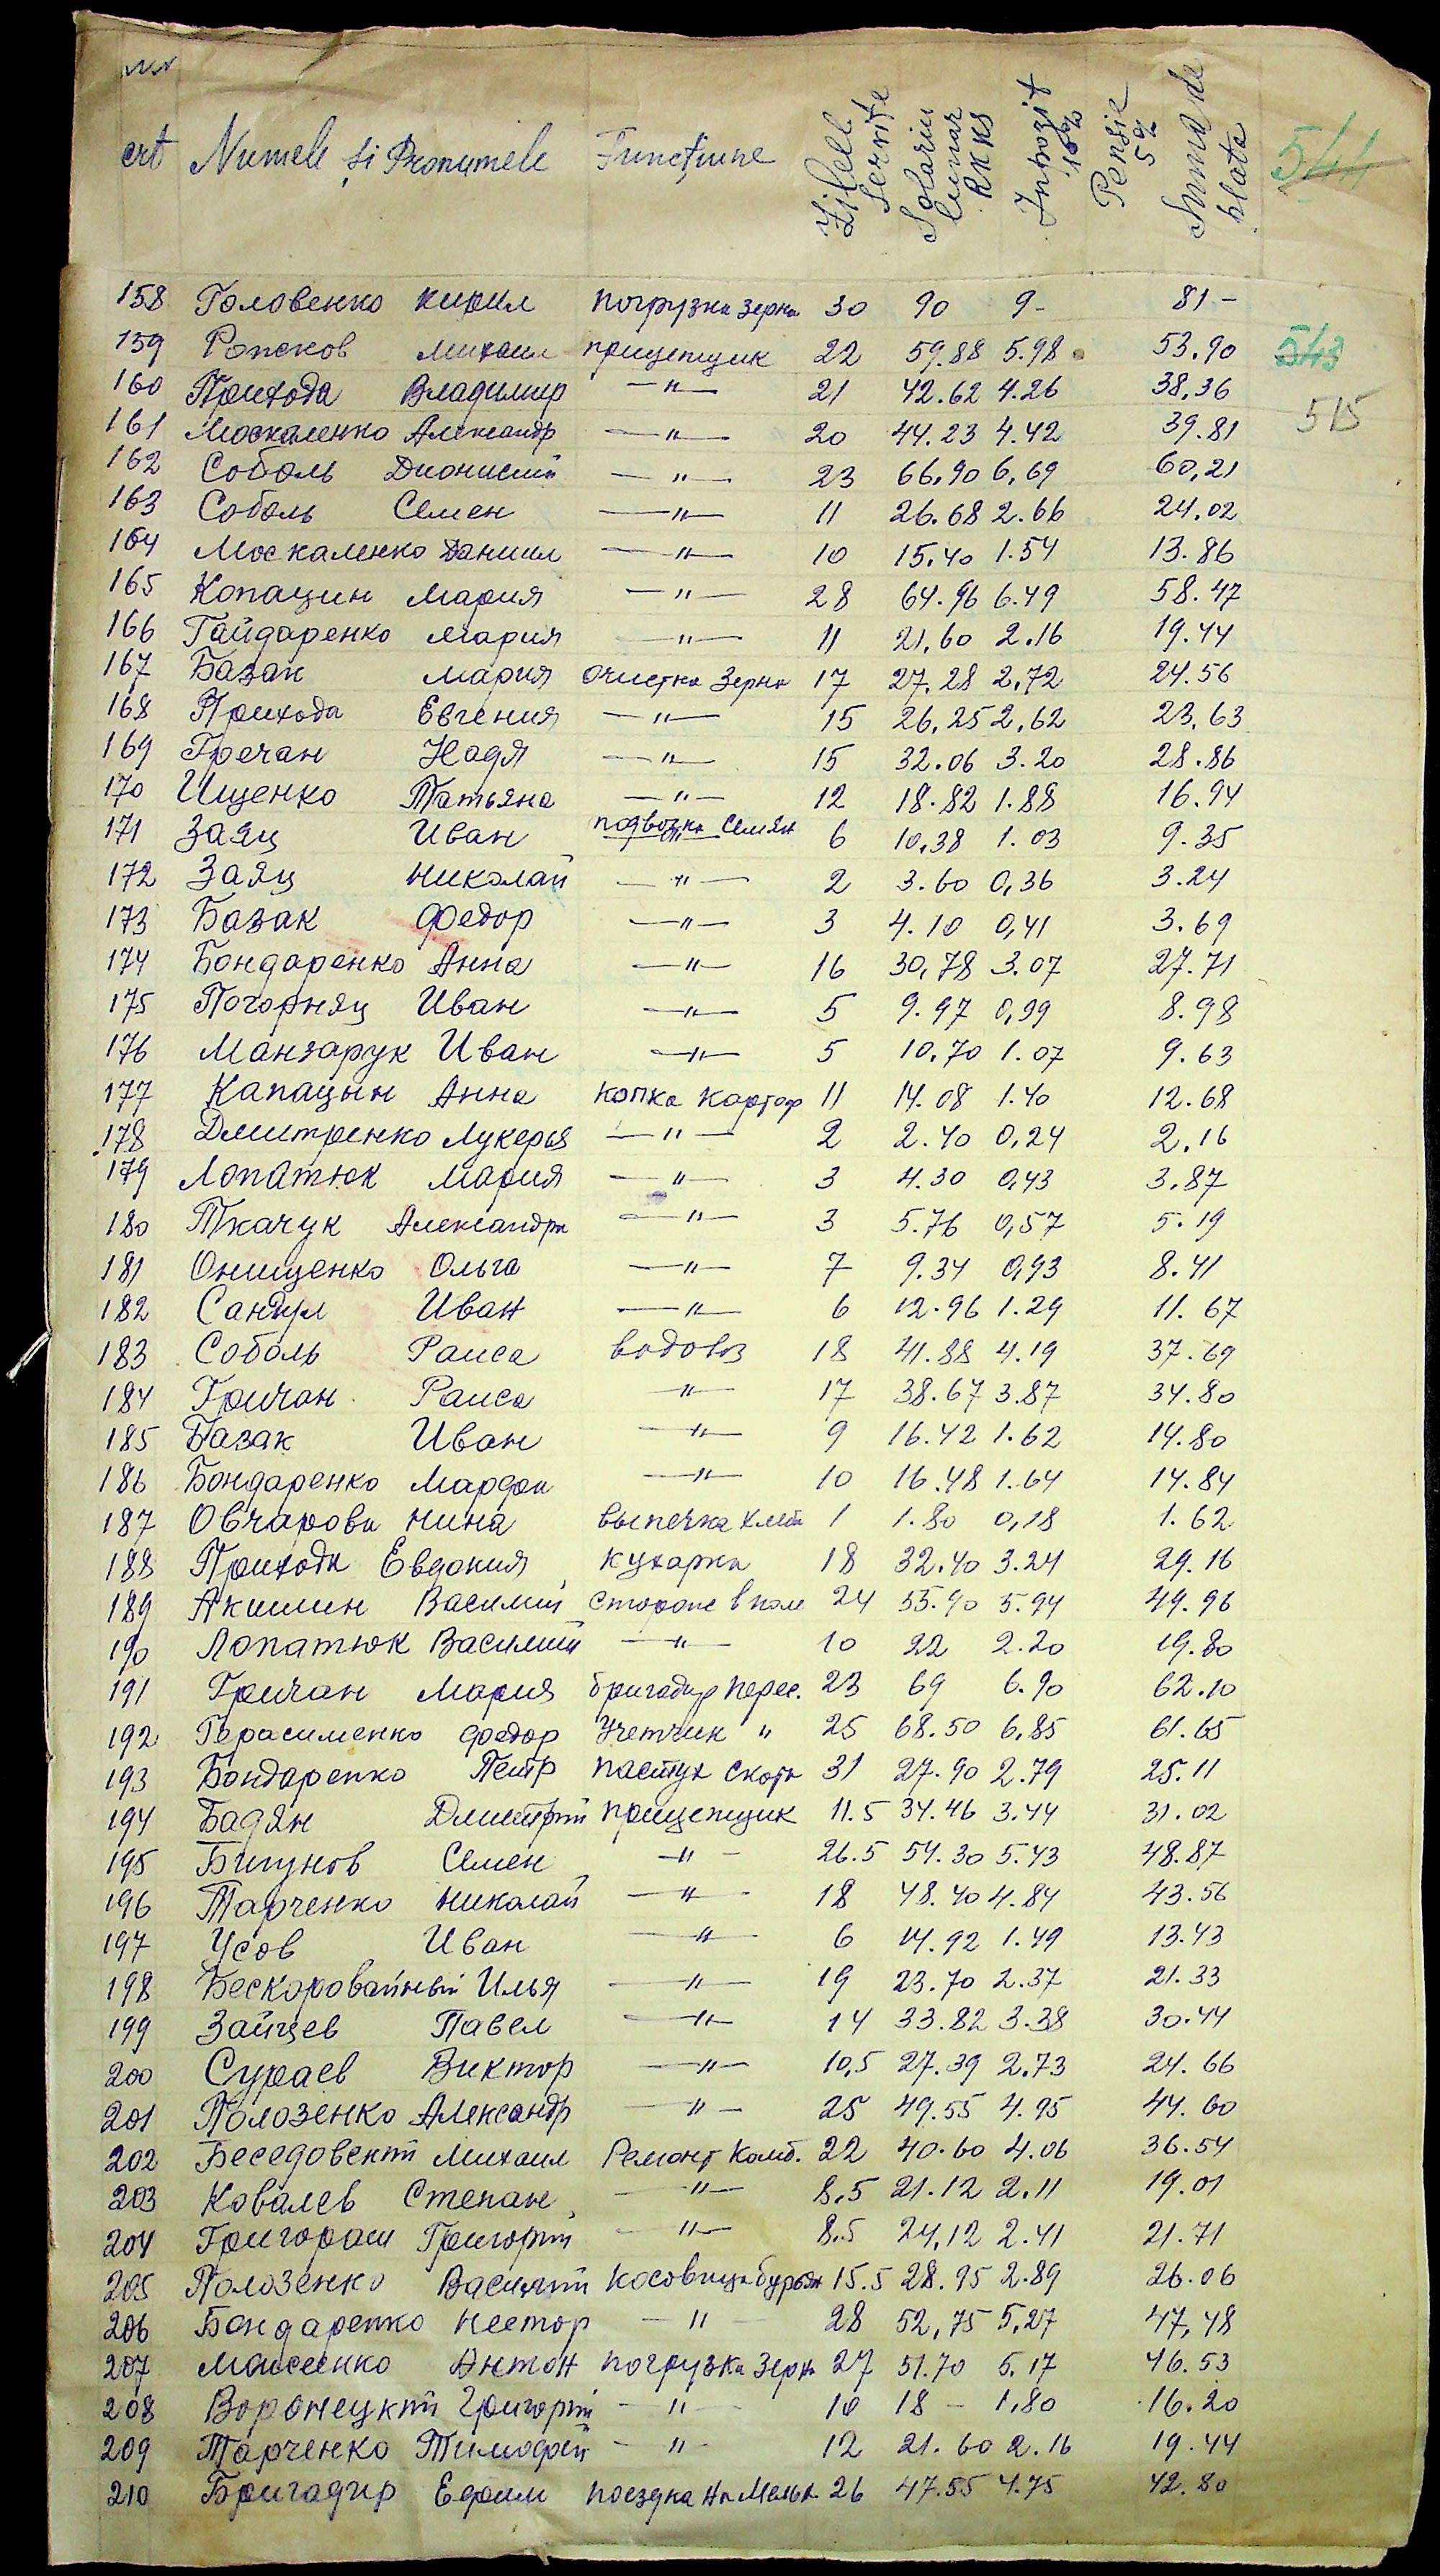 Nr
crt Numele și Pronumele Funcțiune Zilele servite Salariu lunar RKKS Impozit 10% Pensie 5% Suma de plata 544
158 Головенко Кирил погрузка зерна 30 90 9- 81-
159 Ропсков Михаил прицепщик 22 59.88 5.98 53.90 543
160 Приходa Владимир —"— 21 42.62 4.26 38,36
515
161 Москаленко Александр —"— 20 44.23 4.42 39.81
162 Соболь Дионисий —"— 23 66,90 6,69 60,21
163 Соболь Семен —"— 11 26.68 2.66 24,02
164 Москаленко Даниил —"— 10 15.40 1.54 13.86
165 Копацин Мария —"— 28 64.96 6.49 58.47
166 Гайдаренко Мария —"— 11 21,60 2.16 19.44
167 Базак Мария очистка зерна 17 27,28 2,72 24.56
168 Прихода Евгения —"— 15 26,25 2,62 23,63
169 Гречан Надя —"— 15 32.06 3.20 28.86
170 Ищенко Татьяна —"— 12 18.82 1.88 16.94
171 Заяц Иван подвозка семян 6 10,38 1.03 9.35
172 Заяц Николай —"— 2 3.60 0,36 3.24
173 Базак Федор —"— 3 4.10 0,41 3.69
174 Бондаренко Анна —"— 16 30,78 3.07 27.71
175 Погорняц Иван —"— 5 9.97 0,99 8.98
176 Манзарук Иван —"— 5 10,70 1.07 9.63
177 Капацын Анна копка картоф 11 14.08 1.40 12.68
178 Дмитренко Лукерья —"— 2 2.40 0,24 2,16
179 Лопатюк Мария —"— 3 4.30 0,43 3,87
180 Ткачук Александра —"— 3 5.76 0,57 5.19
181 Онищенко Ольга —"— 7 9.34 0,93 8.41
182 Сандул Иван —"— 6 12.96 1.29 11.67
183 Соболь Раиса водовоз 18 41.88 4.19 37.69
184 Гричан Раиса —"— 17 38.67 3.87 34.80
185 Базак Иван —"— 9 16.42 1.62 14.80
186 Бондаренко Мардон —"— 10 16.48 1.64 14.84
187 Овчарова Нина выпечка хлеба 1 1.80 0,18 1.62
188 Прихода Евдокия кухарка 18 32.40 3.24 29.16
189 Акишин Василий сторож в поле 24 55.90 5.94 49.96
190 Лопатюк Василий —"— 10 22 2.20 19.80
191 Гричан Мария бригадир перес. 23 69 6.90 62.10
192 Герасименко Федор Учетчик " 25 68.50 6,85 61.65
193 Бондаренко Петр пастух скота 31 27.90 2.79 25.11
194 Бадян Дмитрий прицепщик 11.5 34.46 3.44 31.02
195 Бигунов Семен —"— 26.5 54.30 5.43 48.87
196 Тарченко Николай —"— 18 48.40 4.84 43.56
197 Усов Иван —"— 6 14.92 1.49 13.43
198 Бескоровайный Илья —"— 19 23.70 2.37 21.33
199 Зайцев Павел —"— 14 33.82 3.38 30.44
200 Сураев Виктор —"— 10,5 27.39 2.73 24.66
201 Полозенко Александр —"— 25 49.55 4.95 44.60
202 Беседовский Михаил Ремонт комб. 22 40.60 4.06 36.54
203 Ковалев Степан —"— 8,5 21.12 2.11 19.01
204 Григораш Григорий —"— 8.5 24,12 2.41 21.71
205 Полозенко Василий Косовица бурьян 15.5 28.95 2.89 26.06
206 Бондаренко Нестор —"— 28 52,75 5,27 47,48
207 Моисеенко Антон погрузка зерн 27 51.70 5.17 46.53
208 Воронецкий Григорий —"— 10 18 - 1,80 16.20
209 Тарченко Тимофей —"— 12 21.60 2.16 19.44
210 Бригадир Ефим поездка на мельн 26 47.55 4.75 42.80